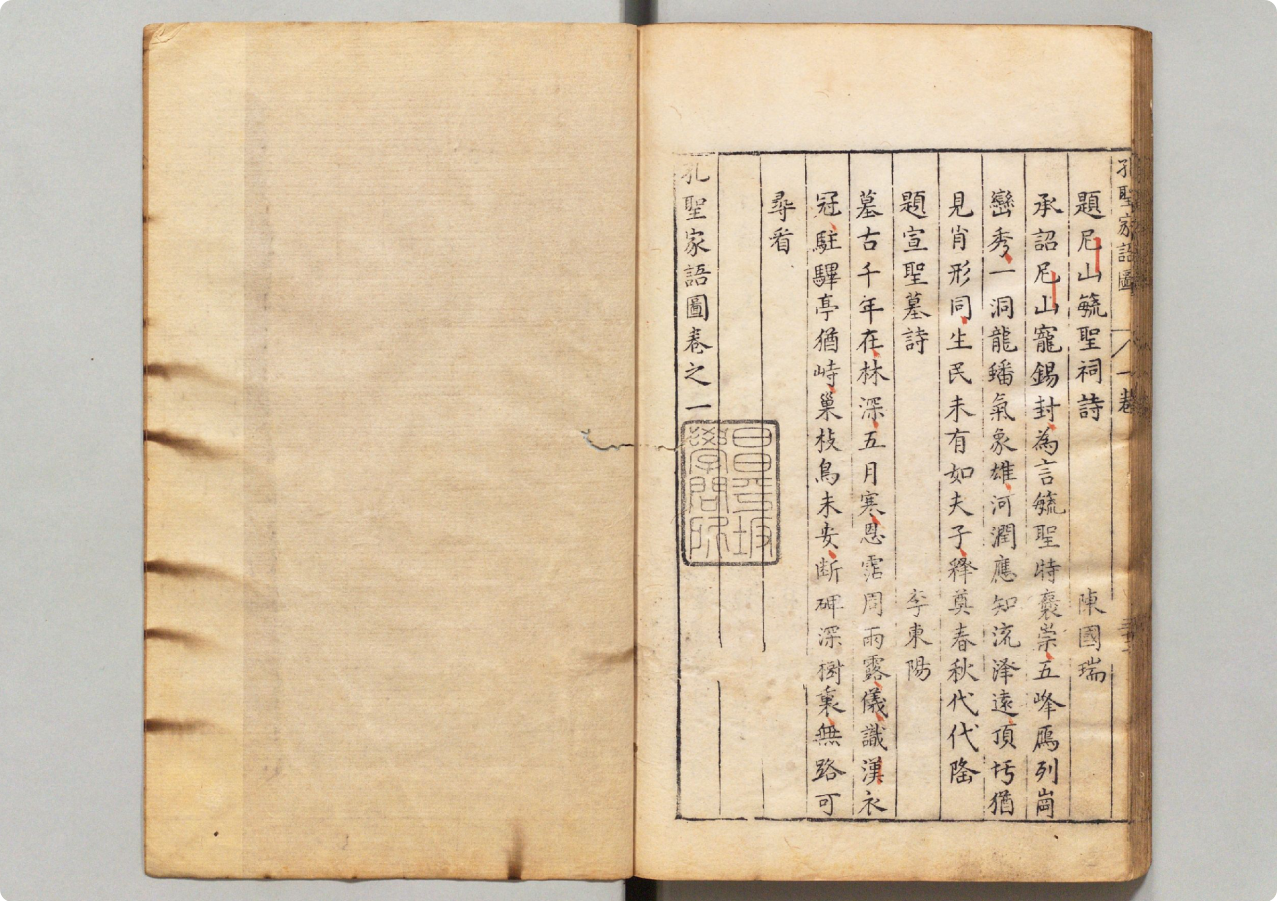 孔聖家語圖 一卷
題尼山毓聖祠詩 陳國瑞
承詔尼山寵錫封為言毓聖特褒崇五峰鴈列崗
巒秀一洞龍蟠氣象雄河潤應知流澤遠頂圬猶
見肖形同生民未有如夫子釋奠春秋代代隆
題宣聖墓詩 李東陽
墓古千年在林深五月寒恩霑周雨露儀識漢衣
冠駐驆亭猶峙巢枝鳥未安断碑深樹裏無路可
尋看
孔聖家語圖卷之一
昌平坂
學問所